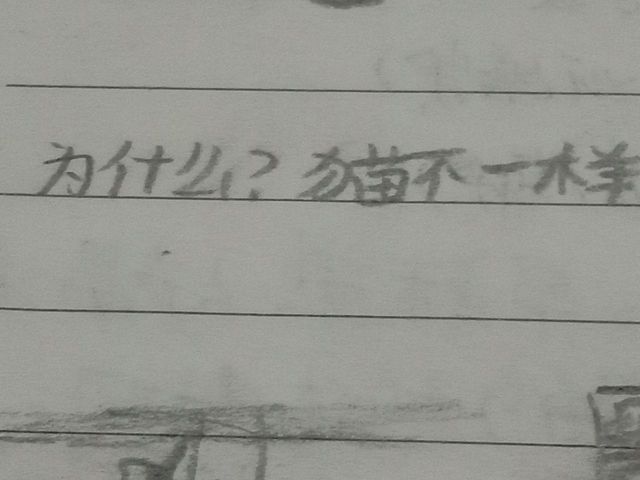 为什么?猫不一样